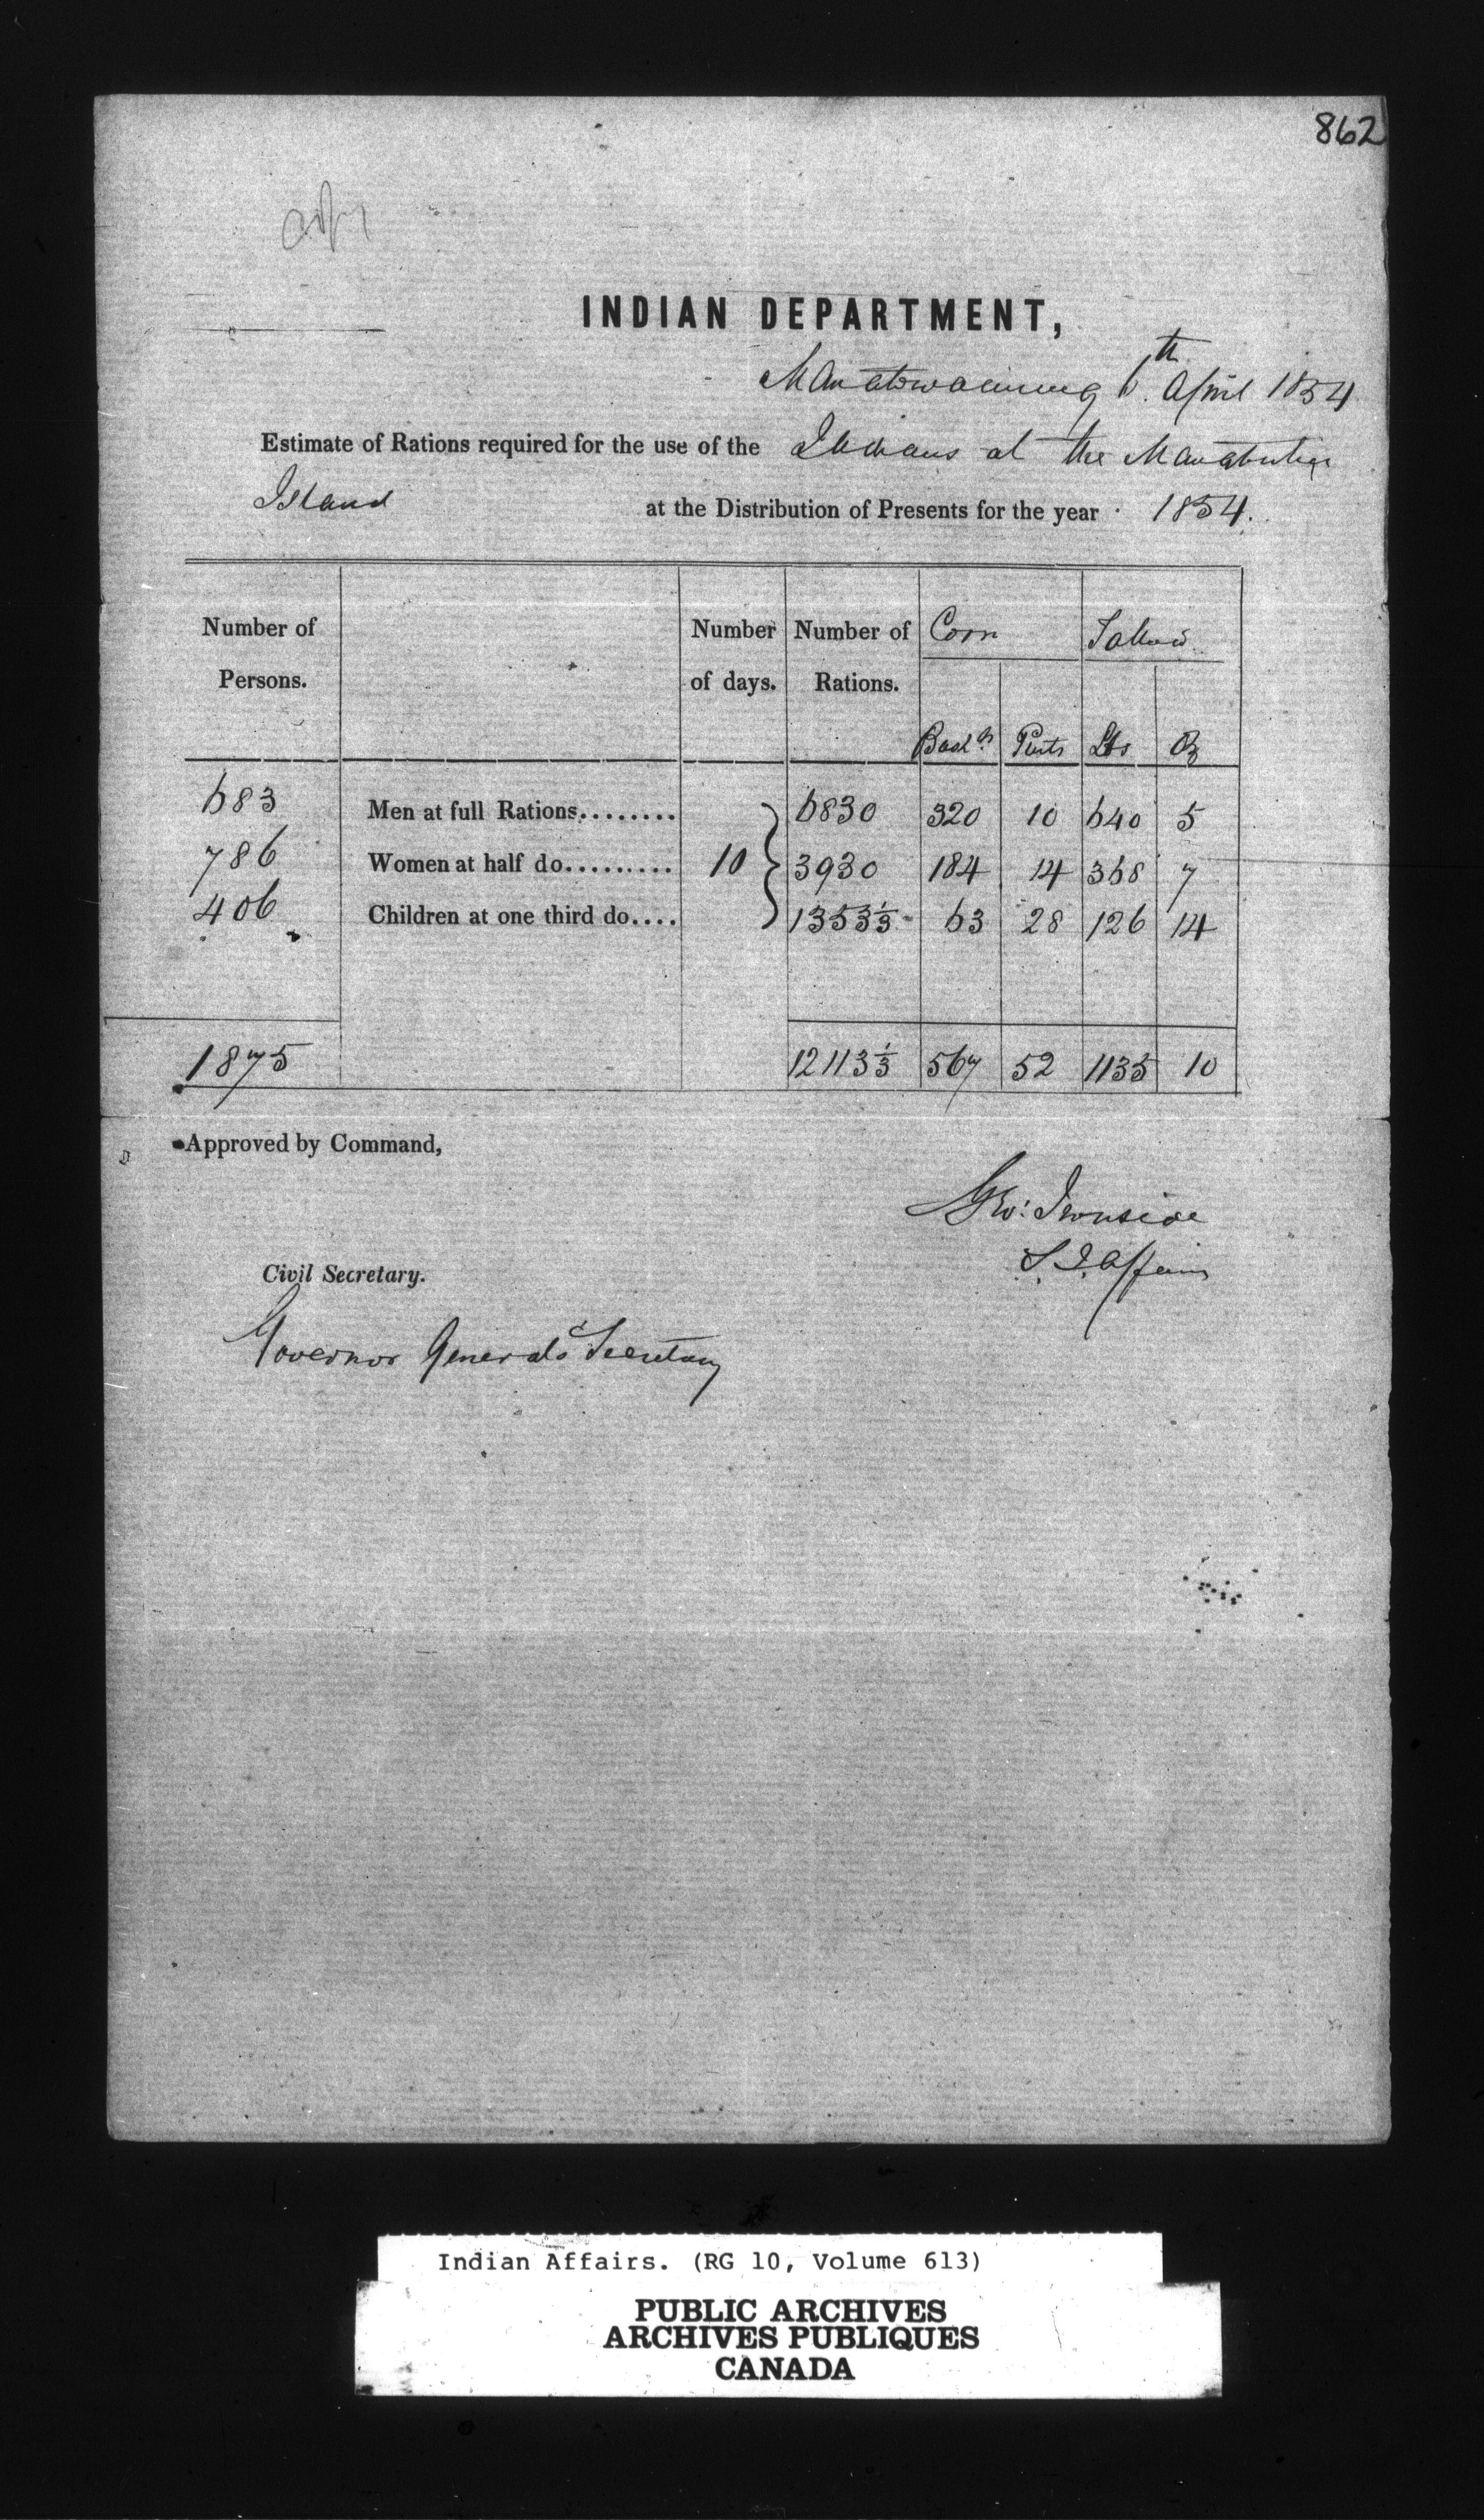 862
INDIAN DEPARTMENT,
Manatowaning 6th April 1854
Estimate of Rations required for the use of the Indians at the Manatoulin
Island at the Distribution of Presents for the year 1854.
Number of Persons. Number of days. Number of Rations. Corn Tallow
Bush.s Pints Lbs Oz
683 Men at full Rations........ 6830 320 10 640 5
786 Women at half do......... 10 3930 184 14 368 7
406 Children at one third do.... 1353 1/3 63 28 126 14
1875 12113 1/3 567 52 1135 10
Approved by Command,
Geo: Ironside
S. I. Affairs
Civil Secretary.
Governor General's Secretary
Indian Affairs. (RG 10, Volume 613)
PUBLIC ARCHIVES
ARCHIVES PUBLIQUES
CANADA